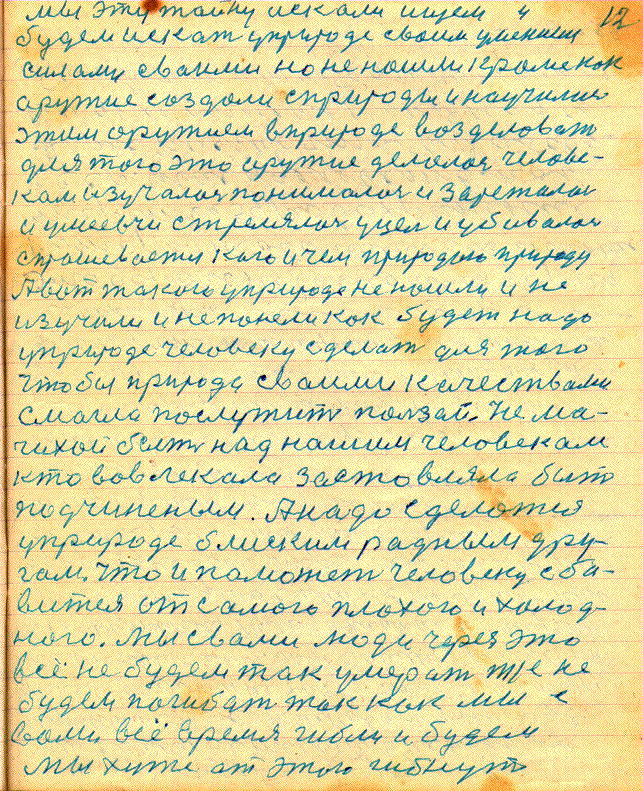 мы эту тайну искали ищем и 12
будем искат уприроде своим умением
силами сваими но не нашли кроме как
аружие создали сприроды и научилис
этим оружием вприроде возделоват
для того это аружие делолоя челове-
кам изучалоя понималоя и зарежалоя
и умеевчи стрелялоя уцел и убивалоя
спрашевается каго и чем природою природу
Авот такого уприроде не нашли и не
изучили и непонели как будет надо
уприроде человеку сделат для того
чтобы природа сваими качествами
смагла послужит ползай. Не ма-
чихой быт над нашим человекам
кто вовлекала застовляла быт
подчиненым. Анадо сделатся
уприроде близким радным дру-
гам. что и паможет человеку сба-
вится от самого плохого и холод-
ного. Мы свами люди через это
всё не будем так умерат же не
будем погибат так как мы с
вами всё время гибли и будем
мы хуже от этого гибнут